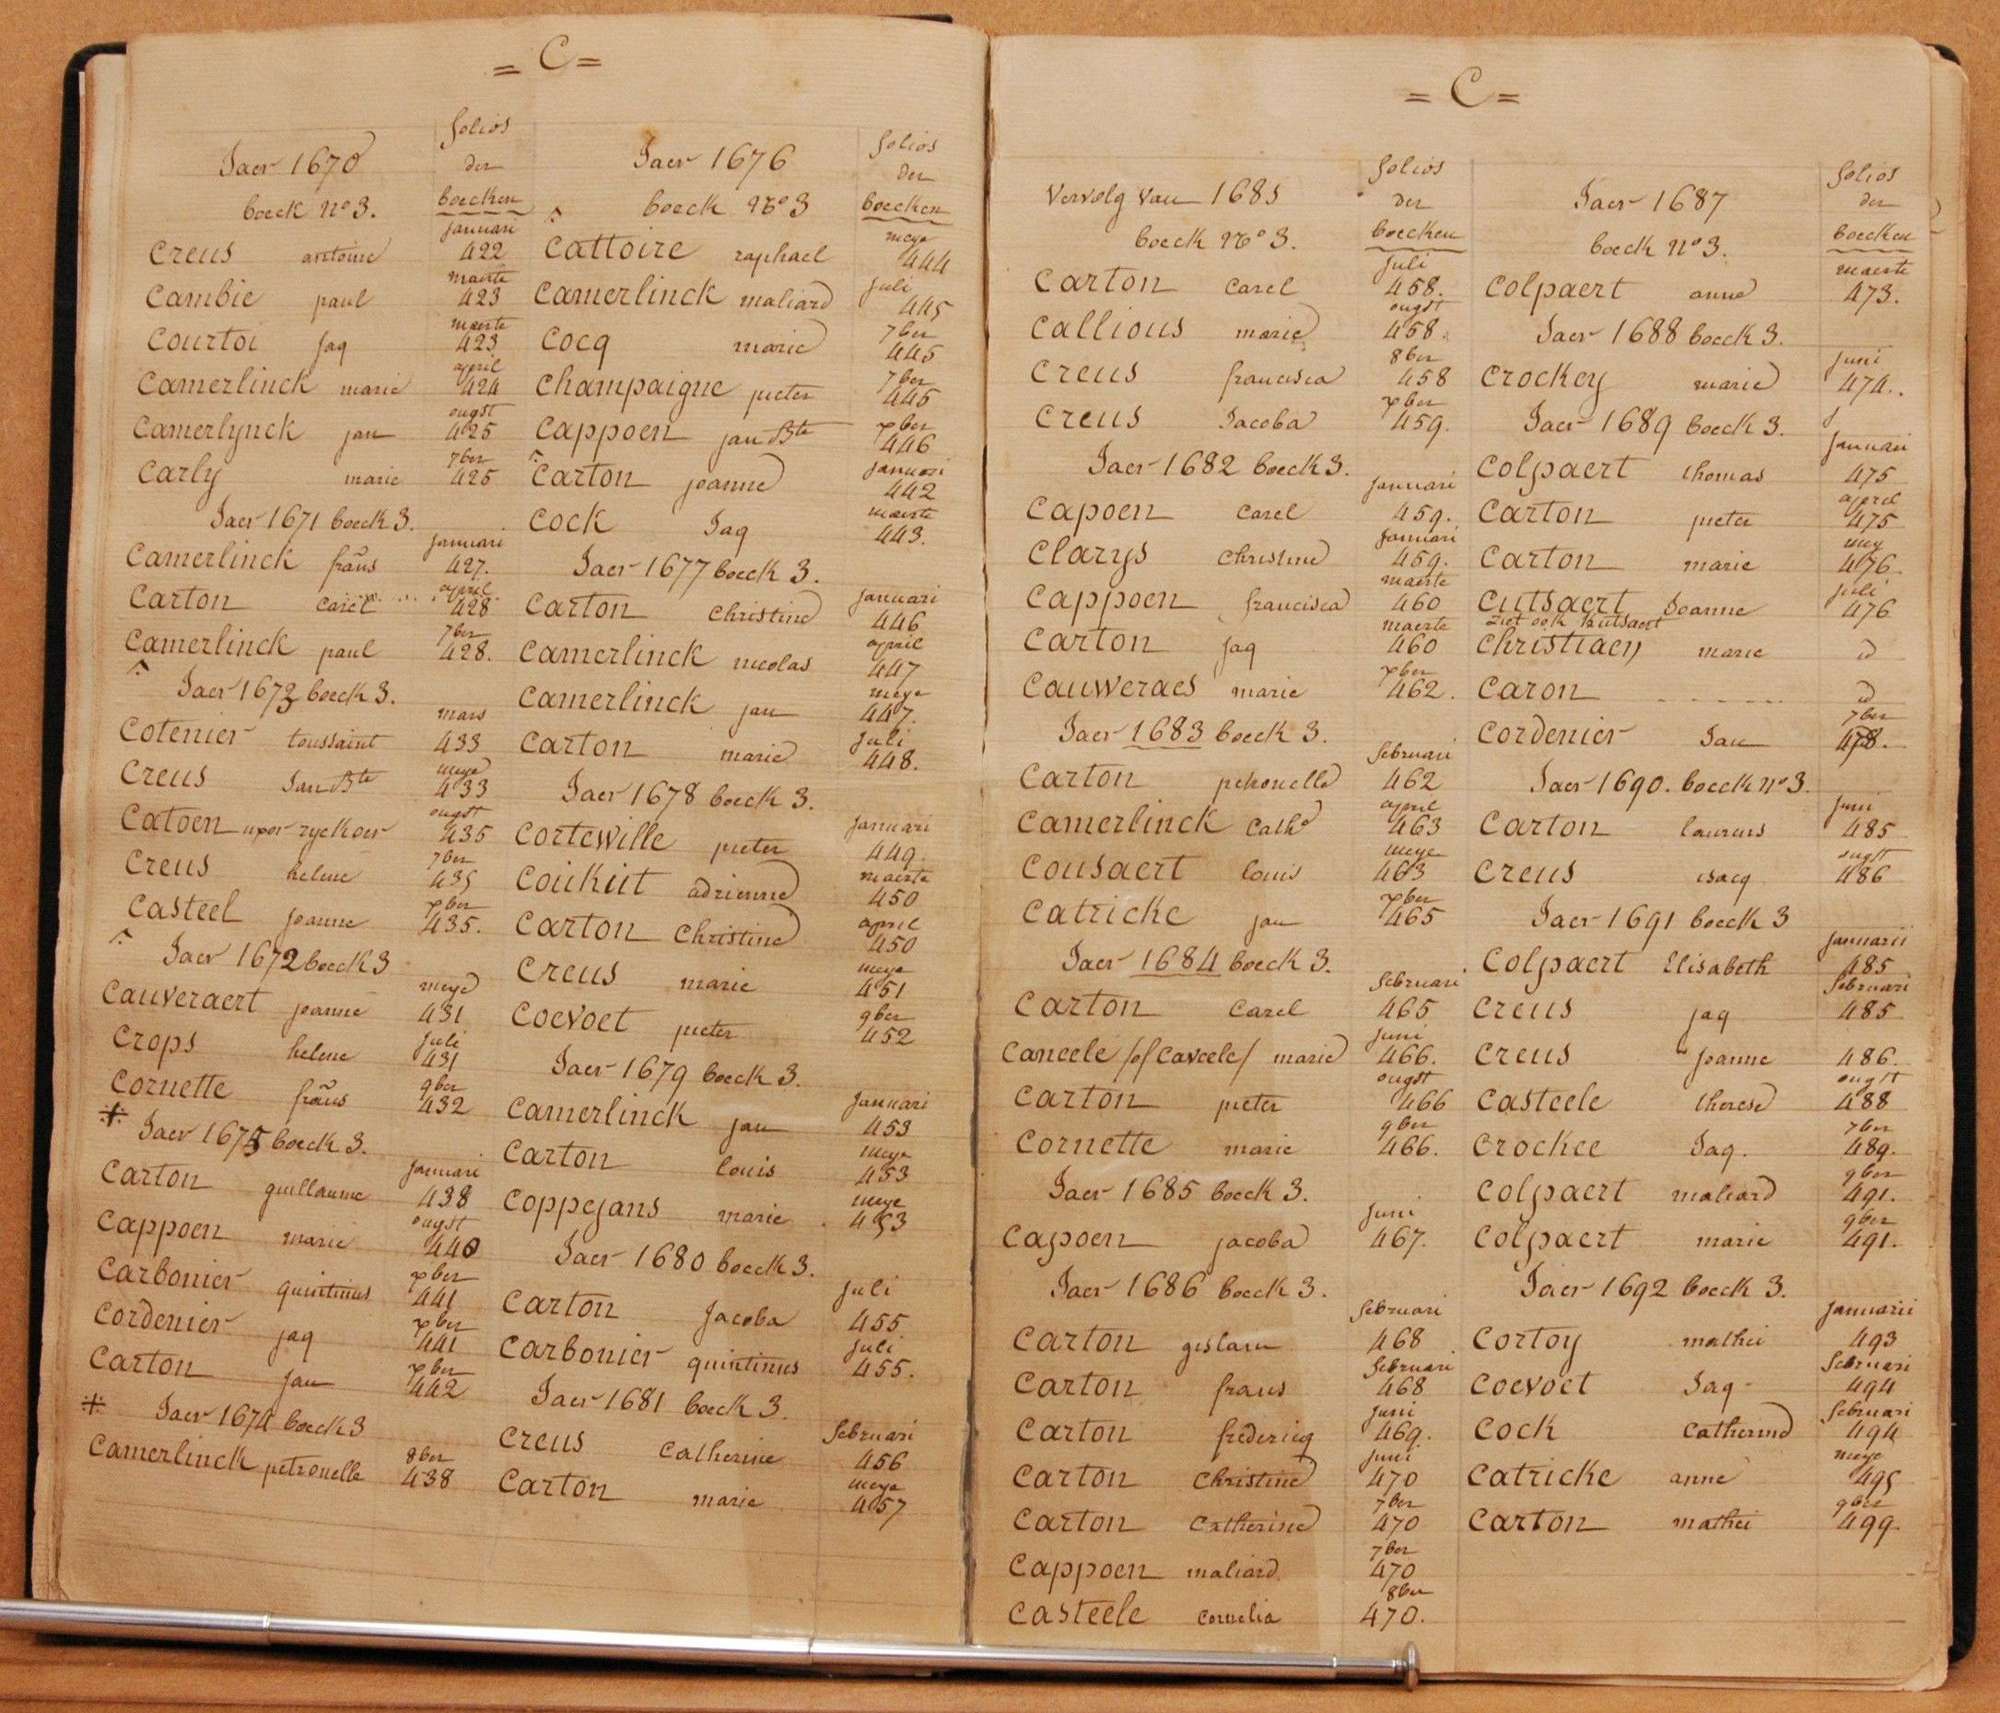 = C =
Jaer 1670
folios
der
boeck N° 3.
boecken
januari
Creus antoine 422
maerte
Cambie paul 423
maerte
Courtoi jaq 423
april
Camerlinck marie 424
ougst
Camerlynck jan 425
7ber
Carly marie 425
Jaer 1671 boeck 3.
januari
Camerlinck frañs 427.
april
Carton carel 428
7ber
Camerlinck paul 428.
Jaer 1673 boeck 3.
mars
Cotenier toussaint 433
meye
Creus Jan Bte 433
ougst
Catoen uxor ryckoer 435
7ber
Creus helene 435
xber
Casteel joanne 435.
Jaer 1672 boeck 3
meye
Cauveraert joanne 431
juli
Crops helene 431
9ber
Cornette frañs 432
Jaer 1675 boeck 3.
januari
Carton guillaume 438
ougst
Cappoen marie 440
xber
Carbonier quintinus 441
xber
Cordenier jaq 441
xber
Carton jan 442
Jaer 1674 boeck 3
8ber
Camerlinck petronelle 438
Jaer 1676
folios
der
boeck N° 3
boecken
meye
Cattoire raphael 444
juli
Camerlinck maliard 445
7ber
Cocq marie 445
7ber
Champaigne pieter 445
xber
Cappoen jan Bte 446
januari
Carton joanne 442
maerte
Cock Jaq 443.
Jaer 1677 boeck 3.
januari
Carton Christine 446
april
Camerlinck nicolas 447
meye
Camerlinck jan 447.
juli
Carton marie 448.
Jaer 1678 boeck 3.
januari
Cortewille pieter 449.
maerte
Coukuit adrienne 450
april
Carton Christine 450
meye
Creus marie 451
9ber
Coevoet pieter 452
Jaer 1679 boeck 3.
januari
Camerlinck jan 453
meye
Carton louis 453
meye
Coppejans marie 453
Jaer 1680 boeck 3.
juli
Carton Jacoba 455
juli
Carbonier quintinus 455.
Jaer 1681 boeck 3.
februari
Creus Catherine 456
meye
Carton marie 457
= C =
Vervolg van 1681
folios
der
boeck N° 3.
boecken
juli
Carton Carel 458.
ougst
Callious marie 458.
8ber
Creus francisca 458
xber
Creus Jacoba 459.
Jaer 1682 boeck 3.
januari
Capoen Carel 459.
januari
Clarys Christine 459.
maerte
Cappoen francisca 460
maerte
Carton jaq 460
xber
Cauweraes marie 462.
Jaer 1683 boeck 3.
februari
Carton petronelle 462
april
Camerlinck Cathe 463
meye
Cousaert louis 463
xber
Catricke jan 465
Jaer 1684 boeck 3.
februari
Carton Carel 465
juni
Caneele /of Caveele/ marie 466.
ougst
Carton pieter 466
9ber
Cornette marie 466.
Jaer 1685 boeck 3.
juni
Capoen jacoba 467.
Jaer 1686 boeck 3.
februari
Carton gislain 468
februari
Carton frans 468
juni
Carton frédericq 469.
juni
Carton Christine 470
7ber
Carton Catherine 470
7ber
Cappoen maliard 470
8ber
Casteele Cornelia 470.
Jaer 1687
folios
der
boeck N° 3.
boecken
maerte
Colpaert anne 473.
Jaer 1688 boeck 3.
juni
Crockey marie 474.
Jaer 1689 boeck 3.
januari
Colpaert thomas 475
april
Carton pieter 475
mey
Carton marie 476
juli
Cutsaert Joanne 476
ziet ook Kutsaert
Christiaen marie id
Caron - - - - - - id
7ber
Cordenier Jan 478.
Jaer 1690. boeck N° 3.
juni
Carton laureus 485
ougst
Creus isacq 486
Jaer 1691 boeck 3
januarii
Colpaert Elisabeth 485
februari
Creus jaq 485
Creus joanne 486.
ougst
Casteele therese 488
7ber
Crockee Jaq. 489.
9ber
Colpaert maliard 491.
9ber
Colpaert marie 491.
Jaer 1692 boeck 3.
januarii
Cortoy mathei 493
februari
Coevoet Jaq 494
februari
Cock Catherine 494
meye
Catricke anne 495
9ber
Carton mathei 499.